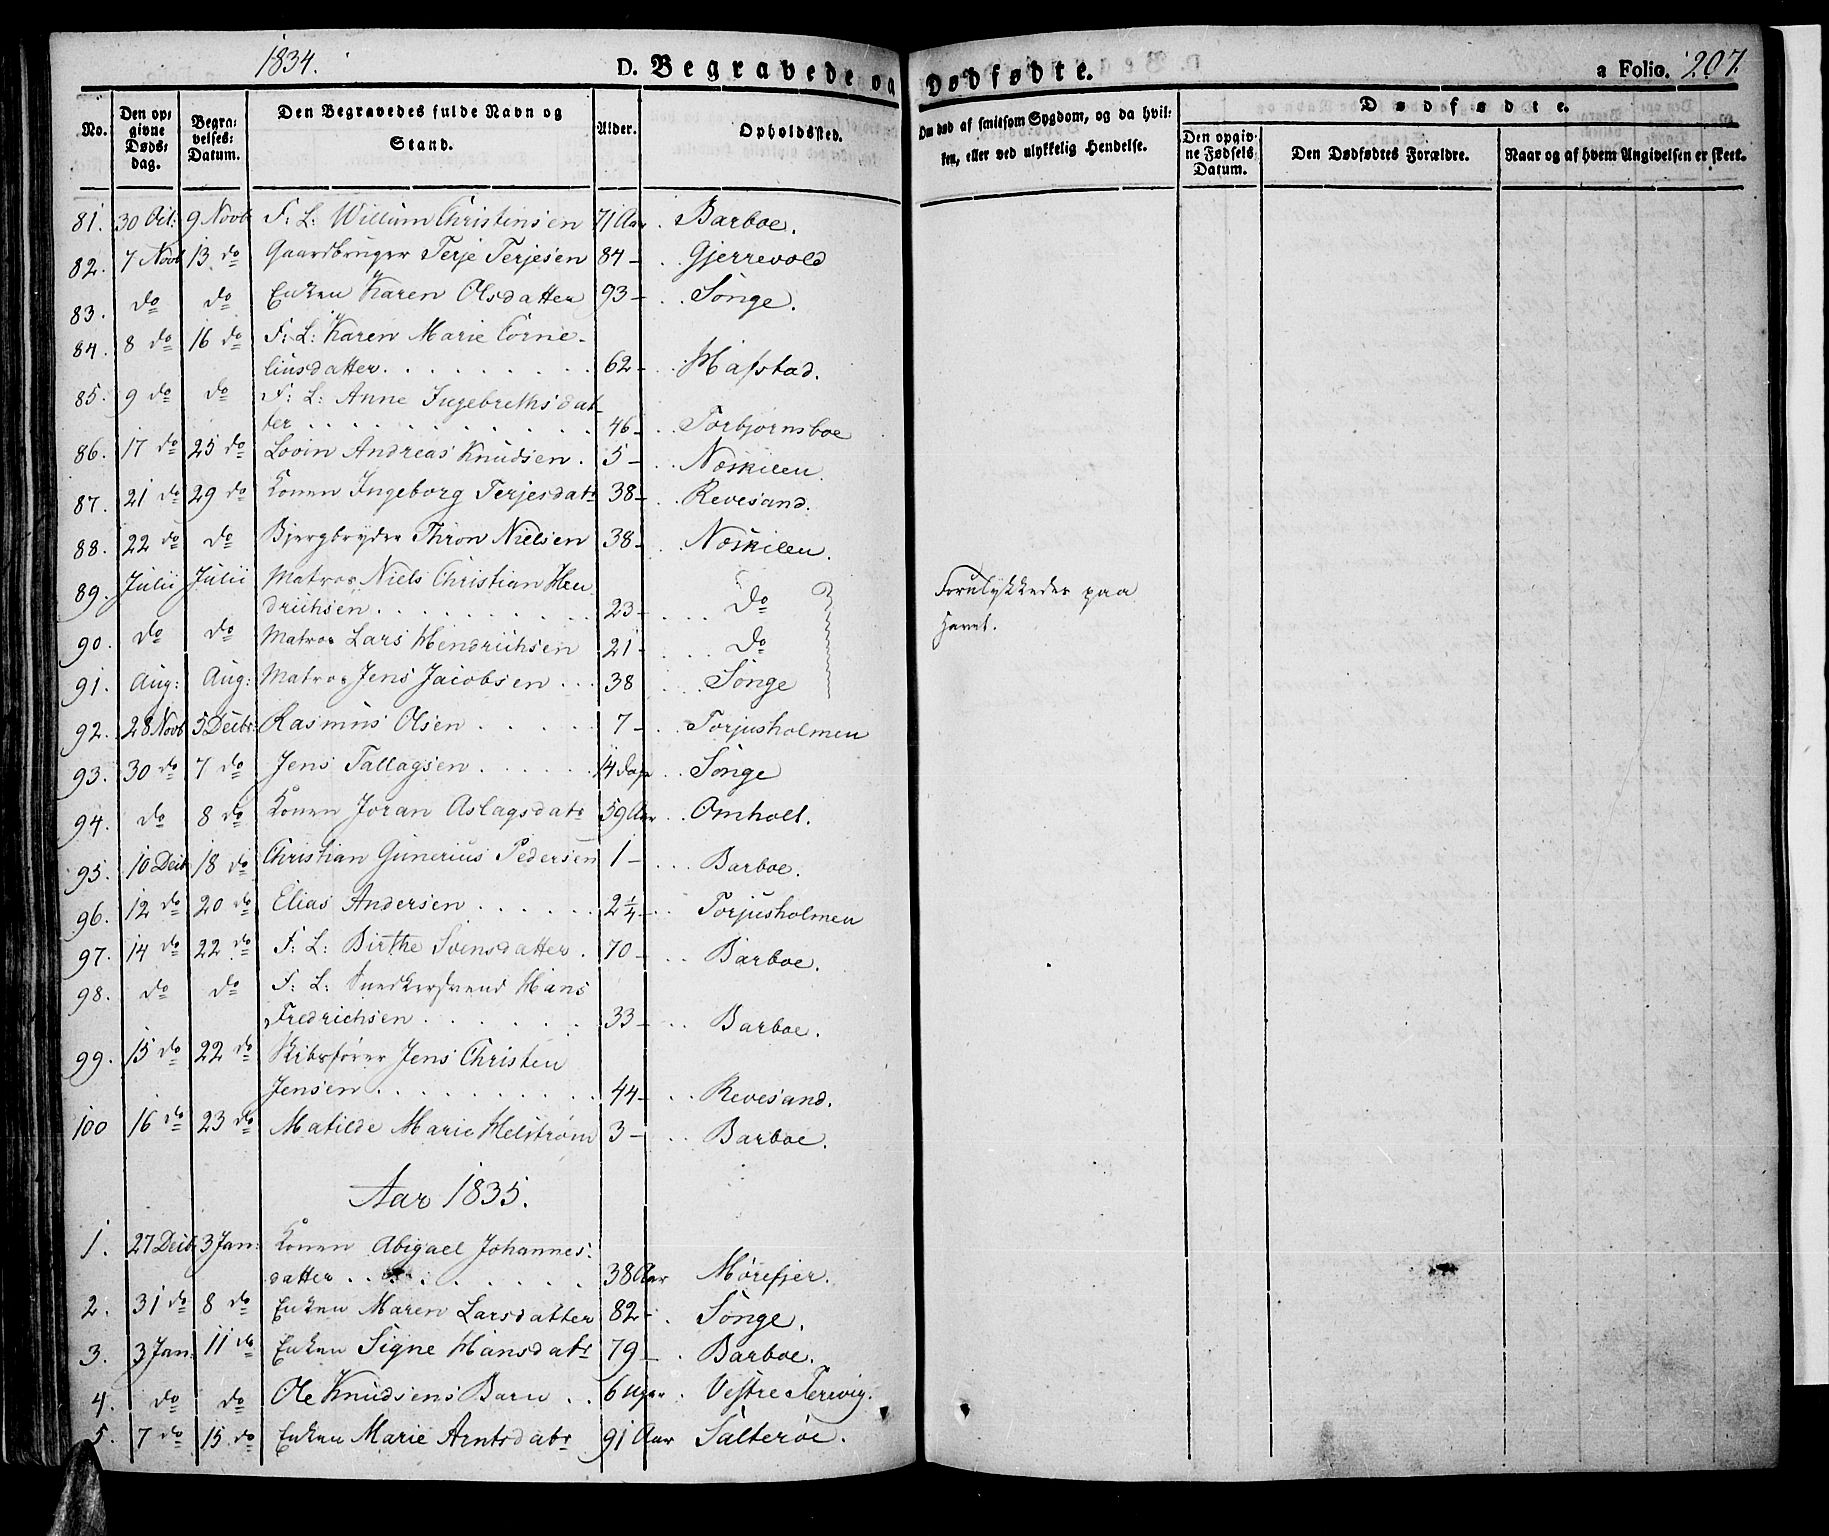 1834. D. Begravede og Dødfødte. a Folio. 207.
No. Den opgivne Dødsdag. Begravelses-Datum. Den Begravedes fulde Navn og Stand. Alder. Opholdssted. Om død af smitsom Sygdom, og da hvilken, eller ved ulykkelig Hendelse. Dødfødte.
Den opgivne Fødsels Datum. Den Dødfødtes Forældre. Naar og af hvem Angivelsen er skeet.
81. 30 Oct: 9 Novb F: L: Willum Christensen 71 Aar . Barboe.
82. 7 Novb 13 do Gaardbruger Terje Terjesen 84 - . . Gjerrevold
83. do do Enken Karen Olsdatter 93 - . . Songe.
84. 8 do 16 do F: L: Karen Marie Corne-
liusdatter. . . . . . . . . 62 - . . Hafstad.
85. 9 do do F: L: Anne Ingebrethsdat-
ter . . . . . . . . . 46 - . . Torbjørnsboe
86. 17 do 25 do Lovin Andreas Knudsen . 5 - . . Næskilen.
87. 21 do 29 do Konen Ingeborg Terjesdatr 38 - . . Revesand.
88. 22 do do Bjergbryder Thron Nielsen 38 - . . Næskilen.
89. Julii Julii Matros Niels Christian Hen-
drichsen . . . . . . . 23 - . . . do Forulykkedes paa
90. do do Matros Lars Hendrichsen 21 - . . . do Havet.
91. Aug: Aug: Matros Jens Jacobsen . . . 38 . . . Songe
92. 28 Novb 5 Decbr: Rasmus Olsen . . . . . 7 - . . Torjusholmen
93. 30 do 7 do Jens Tallagsen . . . . . 14 Dage . . Songe
94. do 8 do Konen Joran Aslagsdatr 59 Aar . . Omholt.
95. 10 Decb 18 do Christian Gunerius Pedersen 1 - . . . Barboe.
96. 12 do 20 do Elias Andersen . . . . . 2 1/4 - . . Torjusholmen
97. 14 do 22 do F: L: Birthe Svensdatter . 70 - . . Barboe.
98. do do F: L: Snedkersvend Hans
Fredrichsen . . . . . . . 33 - . . Barboe.
99. 15 do 22 do Skibsfører Jens Christen
Jensen . . . . . . . . . 44 - . . Revesand.
100 16 do 23 do Matilde Marie Helstrøm 3 - . . Barboe.
Aar 1835.
1. 27 Decb 3 Jan: Konen Abigael Johannes-
datter . . . . . . . . . 38 Aar Mørefjer.
2. 31 do 8 do Enken Maren Larsdatter 82 - . Songe.
3. 3 Jan: 11 do Enken Signe Hansdatr 79 - . Barboe.
4. do do Ole Knudsens Barn . . 6 Uger . Vestre Tervig.
5. 7 do 15 do Enken Marie Arntsdatr 91 Aar . Salterøe.